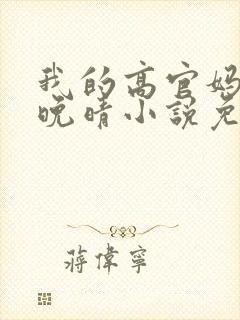 我的高官妈
晚晴小說免
蔣偉寧